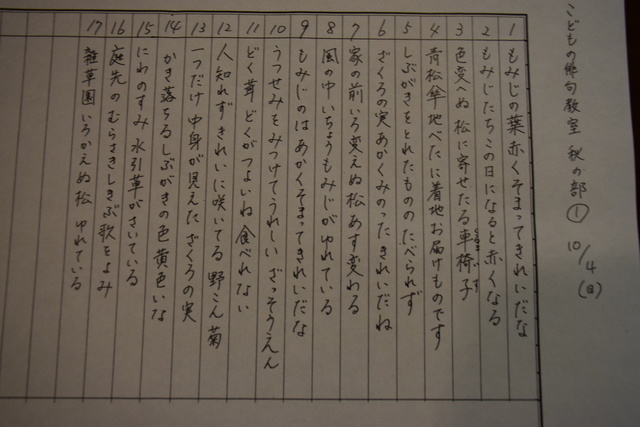 こどもの俳句教室 秋の部① 10/4(日)
1 もみじの葉赤くそまってきれいだな
2 もみじたちこの日になると赤くなる
3 色変へぬ松に寄せたる車椅子
くるまいす
4 青松傘地べたに着地お届けものです
5 しぶがきをとれたもののたべられず
6 ざくろの実あかくみのったきれいだね
7 家の前いろ変えぬ松あす変わる
8 風の中いちょうもみじがゆれている
9 もみじのはあかくそまってきれいだな
10 うつせみをみつけてうれしいざっそうえん
11 どく茸どくがつよいね食べれない
12 人知れずきれいに咲いてる野こん菊
13 一つだけ中身が見えたざくろの実
14 かき落ちるしぶがきの色黄色いな
15 にわのすみ水引草がさいている
16 庭先のむらさきしきぶ歌をよみ
17 雑草園いろかえぬ松ゆれている